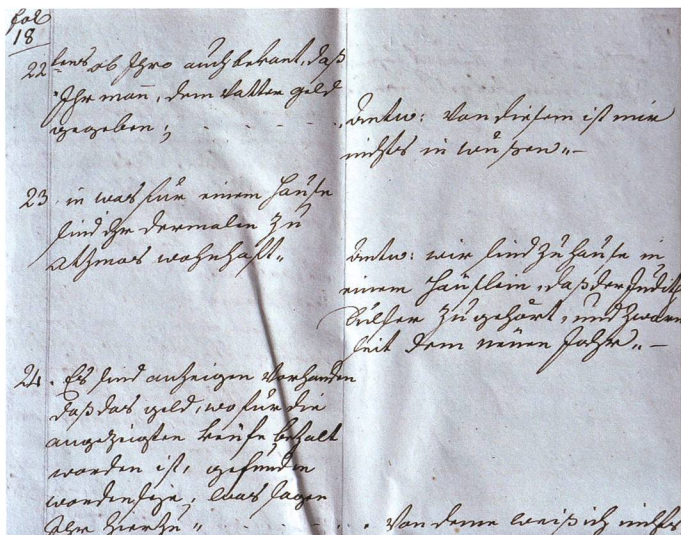 fol
18
22 tens ob Ihro auch bekant, daß
Ihr mann, dem Vatter geld
gegeben;
Antw: von diesem ist mir
nichts in wußen„—
23. in was für einem Hauße
sind Ihr dermalen zu
wohnhaft„
Antw: wir sind zu hauße in
einem Häußlein, daß der Judith
zu gehört, und zwarn
seit dem neuen Jahr„—
24. Es sind anzeigen vorhanden
daß das geld, wo für die
angezeigten keüfe bezalt
worden ist, gefunden
worden seÿe; was sagen
Ihr hierzu„
von deme weiß ich nichts